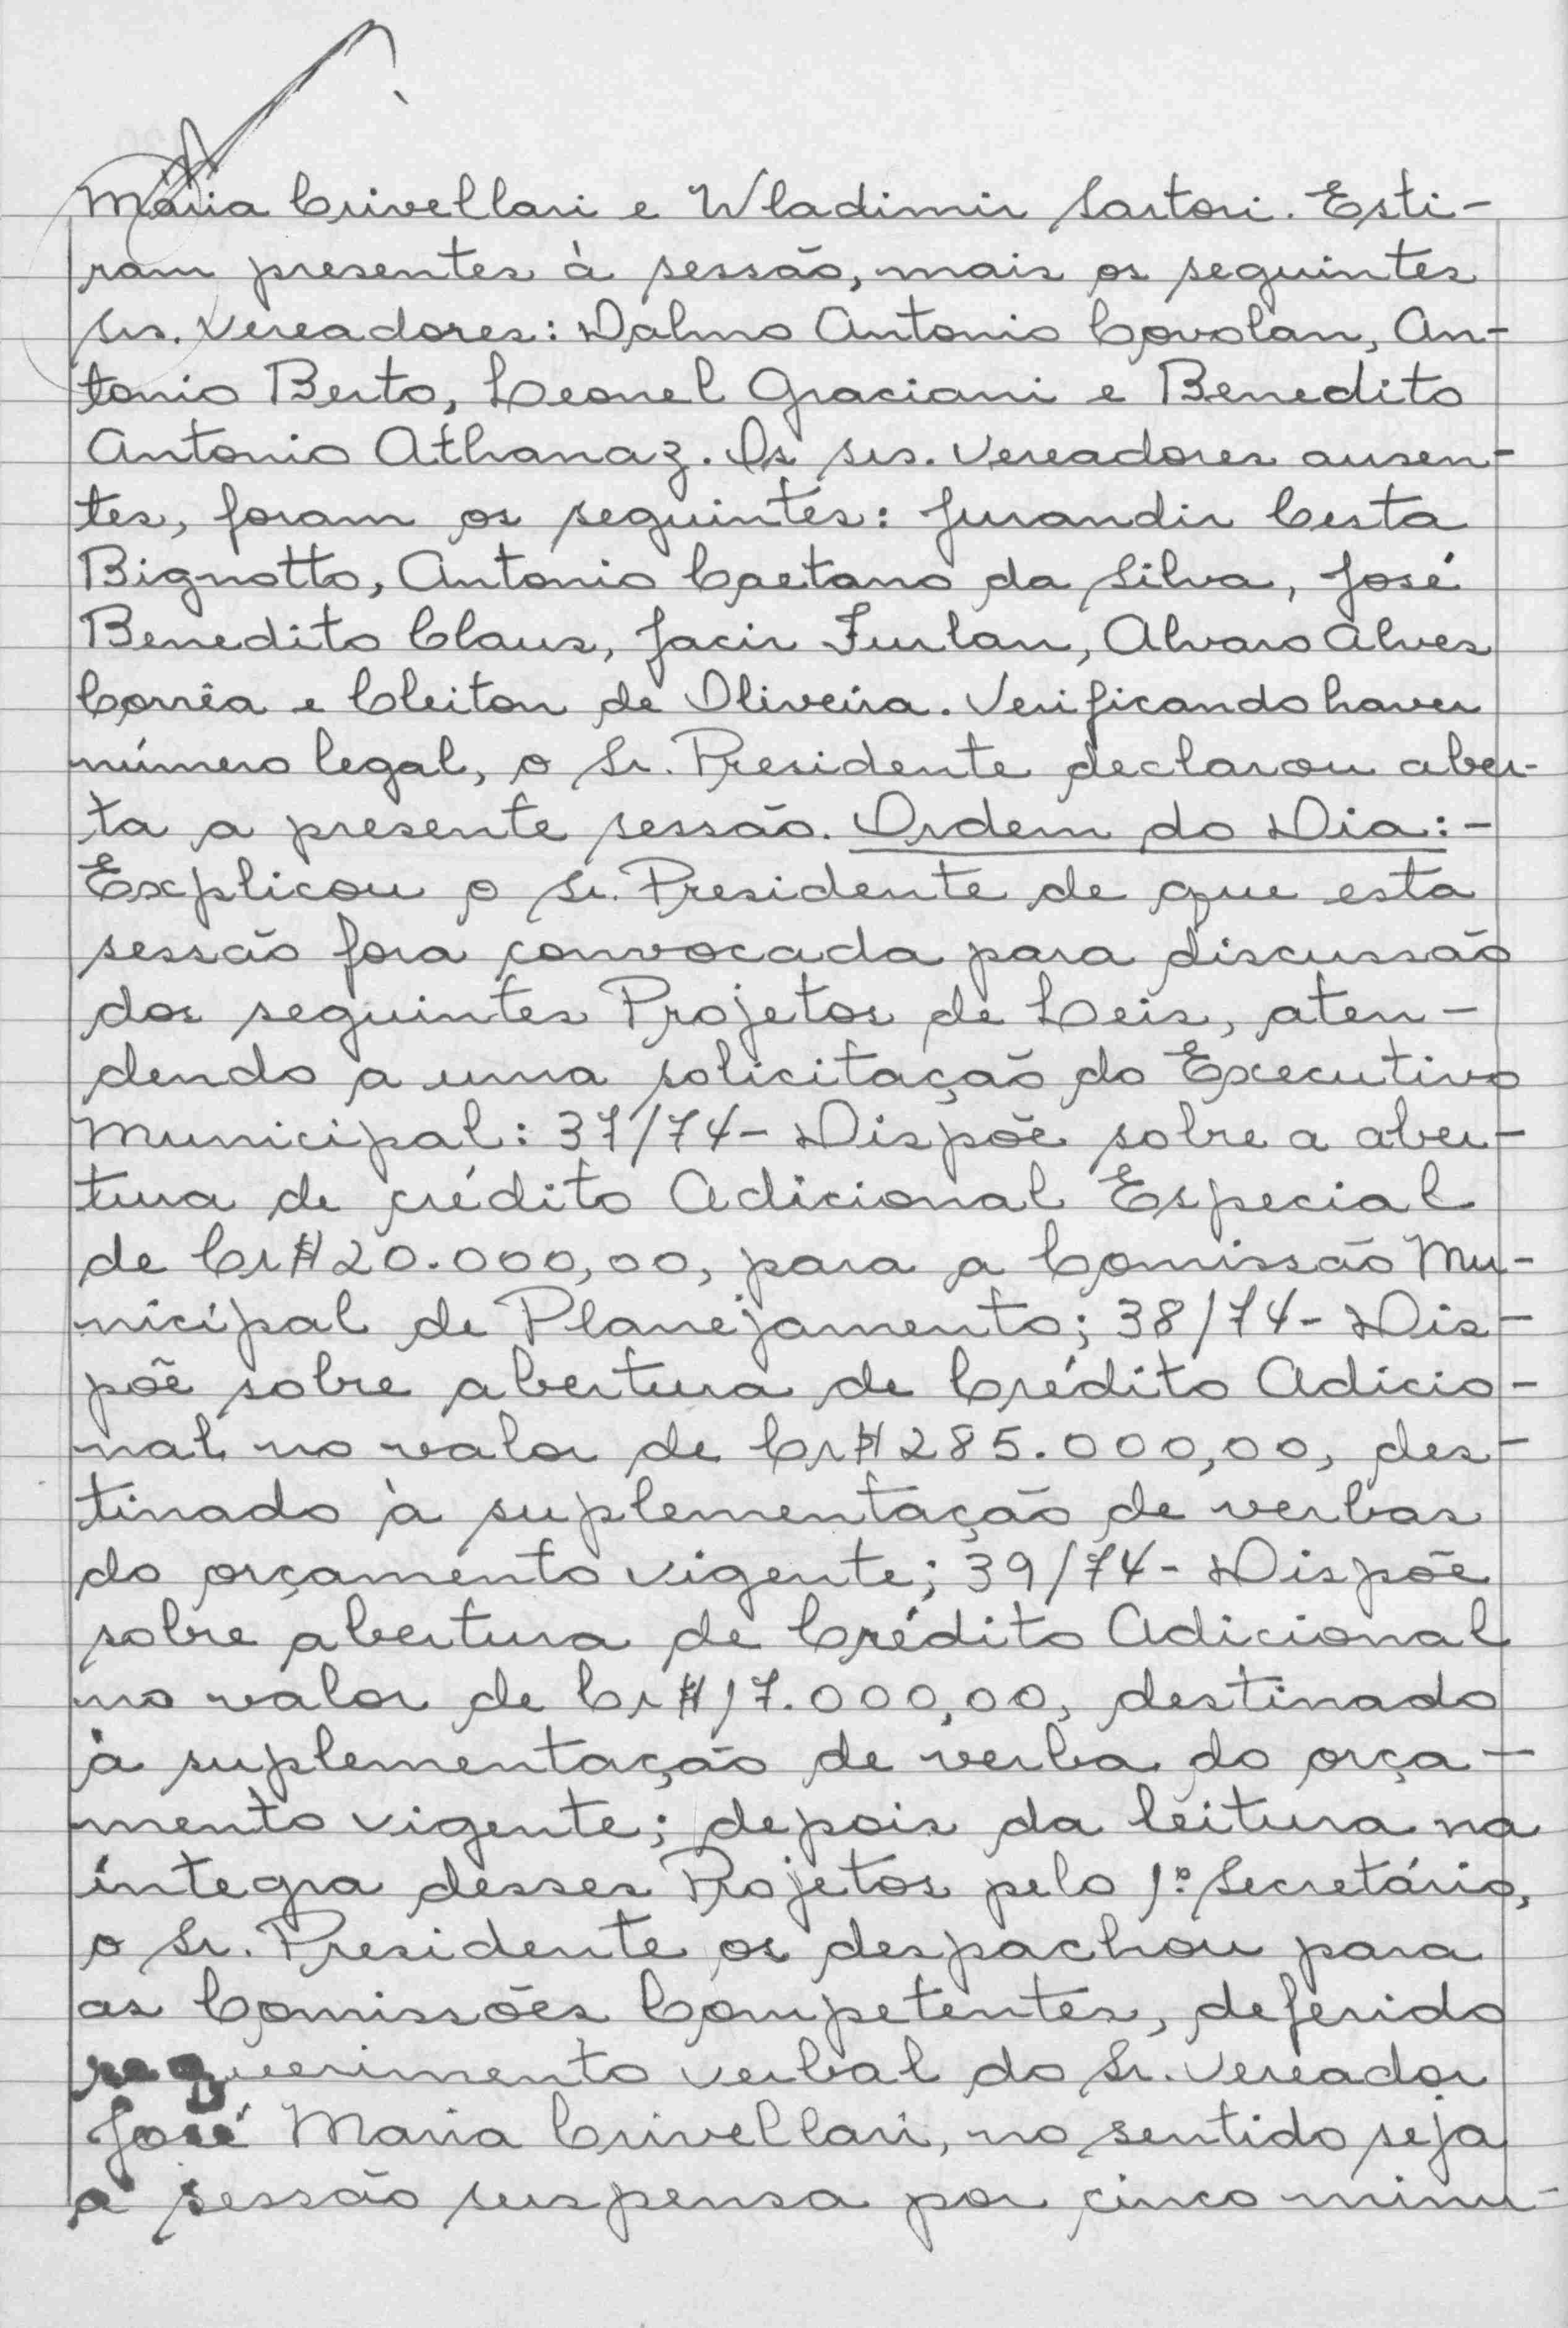 Maria Crivellari e Wladimir Sartori. Esti-
ram presentes à sessão, mais os seguintes
srs. Vereadores: Dalmo Antonio Covolan, An-
tonio Berto, Leonel Graciani e Benedito
Antonio Athanaz. Os srs. Vereadores ausen-
tes, foram os seguintes: Jurandir Certa
Bignotto, Antonio Caetano da Silva, José
Benedito Claus, Jacir Furlan, Alvaro Alves
Corrêa e Cleiton de Oliveira. Verificando haver
número legal, o Sr. Presidente declarou aber-
ta a presente sessão. Ordem do Dia:-
Explicou o Sr. Presidente de que esta
sessão fora convocada para discussão
dos seguintes Projetos de Leis, aten-
dendo a uma solicitação do Executivo
Municipal: 37/74- Dispõe sobre a aber-
tura de crédito Adicional Especial
de Cr$20.000,00, para a Comissão Mu-
nicipal de Planejamento; 38/74- Dis-
põe sobre abertura de Crédito Adicio-
nal no valor de Cr$285.000,00, des-
tinado à suplementação de verbas
do orçamento vigente; 39/74- Dispõe
sobre abertura de Crédito Adicional
no valor de Cr$17.000,00, destinado
à suplementação de verba do orça-
mento vigente; depois da leitura na
íntegra desses Projetos pelo 1º Secretário,
o Sr. Presidente os despachou para
as Comissões Competentes, deferido
requerimento verbal do Sr. Vereador
José Maria Crivellari, no sentido seja
a sessão suspensa por cinco minu-